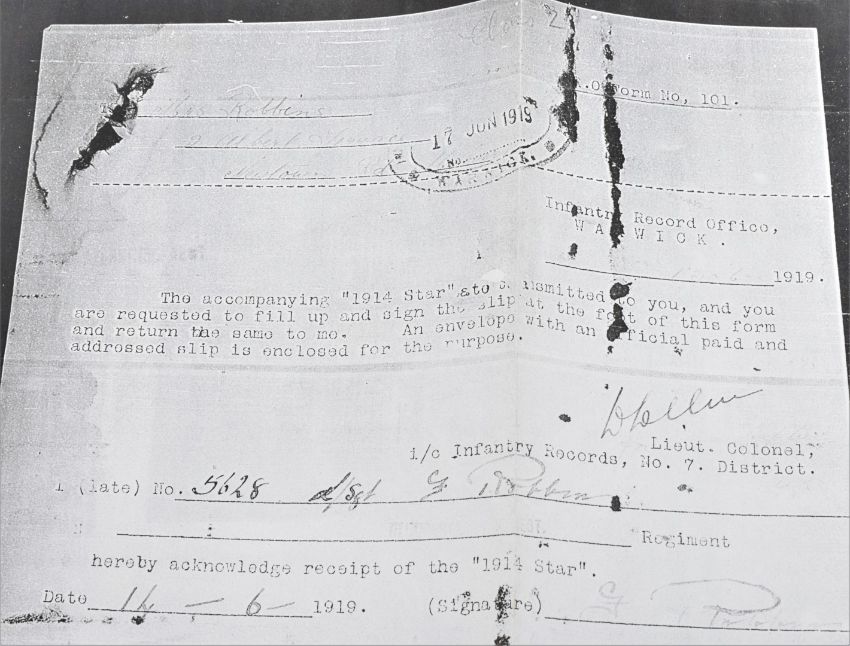 Class 2
A.O. Form No, 101.
Robbins
17 JUN 1919
No.
WARWICK.
Infantry Record Office,
WARWICK.
1919.
The accompanying "1914 Star" transmitted to you, and you
are requested to fill up and sign the slip at the foot of this form
and return the same to me. An envelope with an official paid and
addressed slip is enclosed for the purpose.
Lieut. Colonel,
i/c Infantry Records, No. 7. District.
I (late) No. 5628 a/Sgt G Robbins
Regiment
hereby acknowledge receipt of the "1914 Star".
Date 14 - 6 - 1919. (Signature) G Robbins